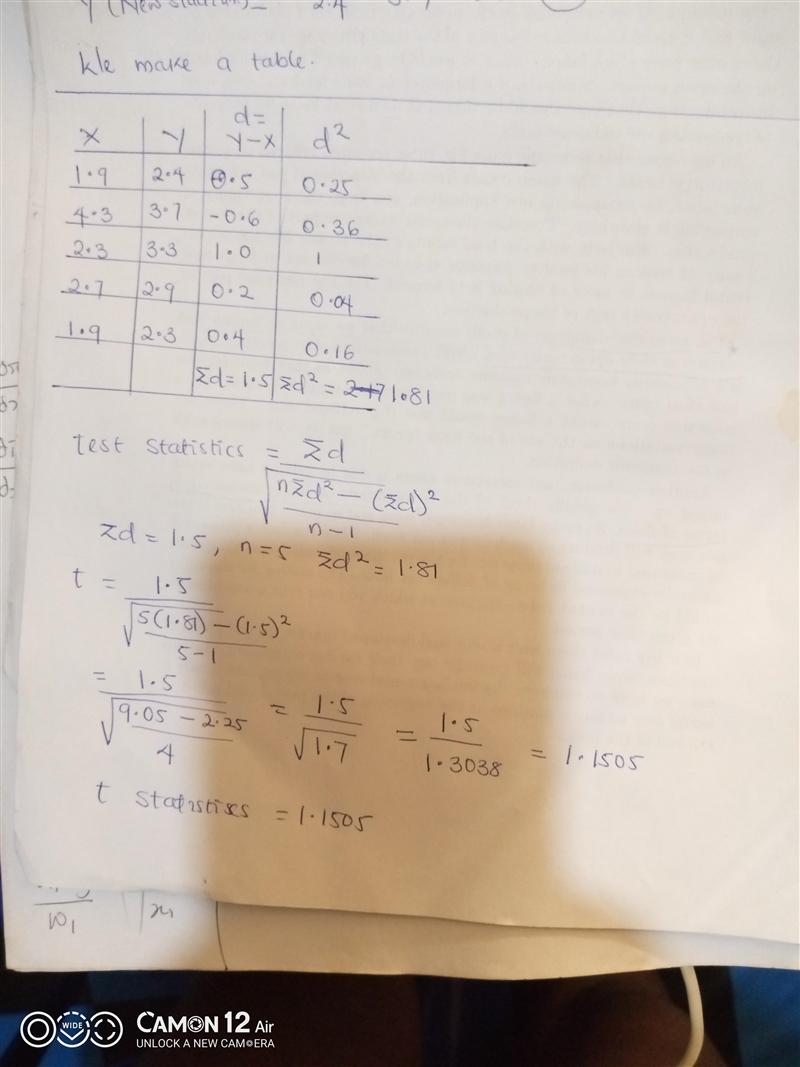 Y (New stadium)- 2.4
We make a table.
X Y d = Y-X d²
1.9 2.4 0.5 0.25
4.3 3.7 -0.6 0.36
2.3 3.3 1.0 1
2.7 2.9 0.2 0.04
1.9 2.3 0.4 0.16
Σd = 1.5 Σd² = 1.81
test statistics = Σd / √((nΣd² - (Σd)²) / (n-1))
Σd = 1.5, n = 5 Σd² = 1.81
t = 1.5 / √((5(1.81) - (1.5)²) / (5-1))
= 1.5 / √((9.05 - 2.25) / 4) = 1.5 / √1.7 = 1.5 / 1.3038 = 1.1505
t statistiscs = 1.1505
WIDE
CAMON 12 Air
UNLOCK A NEW CAMERA